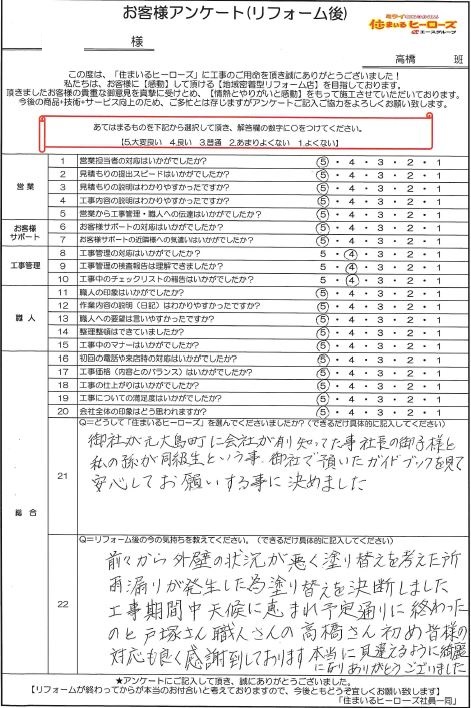 お客様アンケート(リフォーム後)
ミライ
住まいるヒーローズ
エースグループ
様
高橋 班
この度は、「住まいるヒーローズ」に工事のご用命を頂き誠にありがとうございました！
私たちは、お客様に【感動】して頂ける【地域密着型リフォーム店】を目指しております。
頂きましたお客様の貴重な御意見を真摯に受けとめ、【情熱とやりがいと感動】をもって施工させていただいております。
今後の商品・技術・サービス向上のため、ご多忙とは存じますがアンケートご記入ご協力をよろしくお願い致します。
あてはまるものを下記から選択して頂き、解答欄の数字に○をつけてください。
【5.大変良い 4.良い 3.普通 2.あまりよくない 1.よくない】
営業
1 営業担当者の対応はいかがでしたか？ 5・4・3・2・1
2 見積もりの提出スピードはいかがでしたか？ 5・4・3・2・1
3 見積もりの説明はわかりやすかったですか？ 5・4・3・2・1
4 工事内容の説明はわかりやすかったですか？ 5・4・3・2・1
5 営業から工事管理・職人への伝達はいかがでしたか？ 5・4・3・2・1
お客様サポート
6 お客様サポートの対応はいかがでしたか？ 5・4・3・2・1
7 お客様サポートの近隣様への気遣いはいかがでしたか？ 5・4・3・2・1
工事管理
8 工事管理の対応はいかがでしたか？ 5・4・3・2・1
9 工事管理の検査報告は理解できましたか？ 5・4・3・2・1
10 工事中のチェックリストの報告はいかがでしたか？ 5・4・3・2・1
職人
11 職人の印象はいかがでしたか？ 5・4・3・2・1
12 作業内容の説明（日記）はわかりやすかったですか？ 5・4・3・2・1
13 職人への要望は言いやすかったですか？ 5・4・3・2・1
14 整理整頓はできていましたか？ 5・4・3・2・1
15 工事中のマナーはいかがでしたか？ 5・4・3・2・1
総合
16 初回の電話や来店時の対応はいかがでしたか？ 5・4・3・2・1
17 工事価格（内容とのバランス）はいかがでしたか？ 5・4・3・2・1
18 工事の仕上がりはいかがでしたか？ 5・4・3・2・1
19 工事についての満足度はいかがでしたか？ 5・4・3・2・1
20 会社全体の印象はどう思われますか？ 5・4・3・2・1
21
Q=どうして「住まいるヒーローズ」を選んでくださいましたか？（できるだけ具体的に記入してください）
御社が元大島町に会社が有り知ってた事社長の御子様と
私の孫が同級生という事、御社で頂いたガイドブックを見て
安心してお願いする事に決めました
22
Q=リフォーム後の今の気持ちを教えてください。（できるだけ具体的に記入してください）
前々から外壁の状況が悪く塗り替えを考えた所
雨漏りが発生した為塗り替えを決断しました
工事期間中天候に恵まれ予定通りに終わった
のと戸塚さん職人さんの高橋さん初め皆様の
対応も良く感謝到しております本当に見違えるように綺麗
になりありがとうございました
★アンケートにご記入して頂き、誠にありがとうございました。
【リフォームが終わってからが本当のお付合いと考えておりますので、今後ともどうぞ宜しくお願い致します】
「住まいるヒーローズ社員一同」